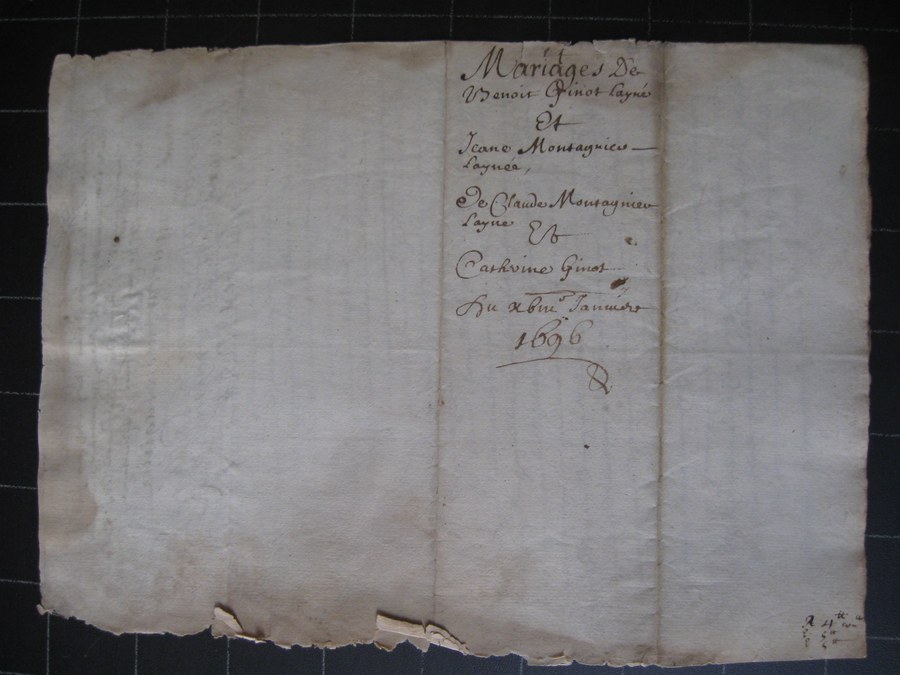 Mariages De
Benoit Ginot layné
Et
Jeane Montagnier
Laynée,
De Claude Montagnier
Layne
Et
Cathrine Ginot
Du Janvier
1696